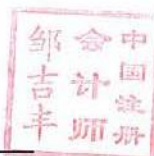 中国注册
会计师
邹吉丰